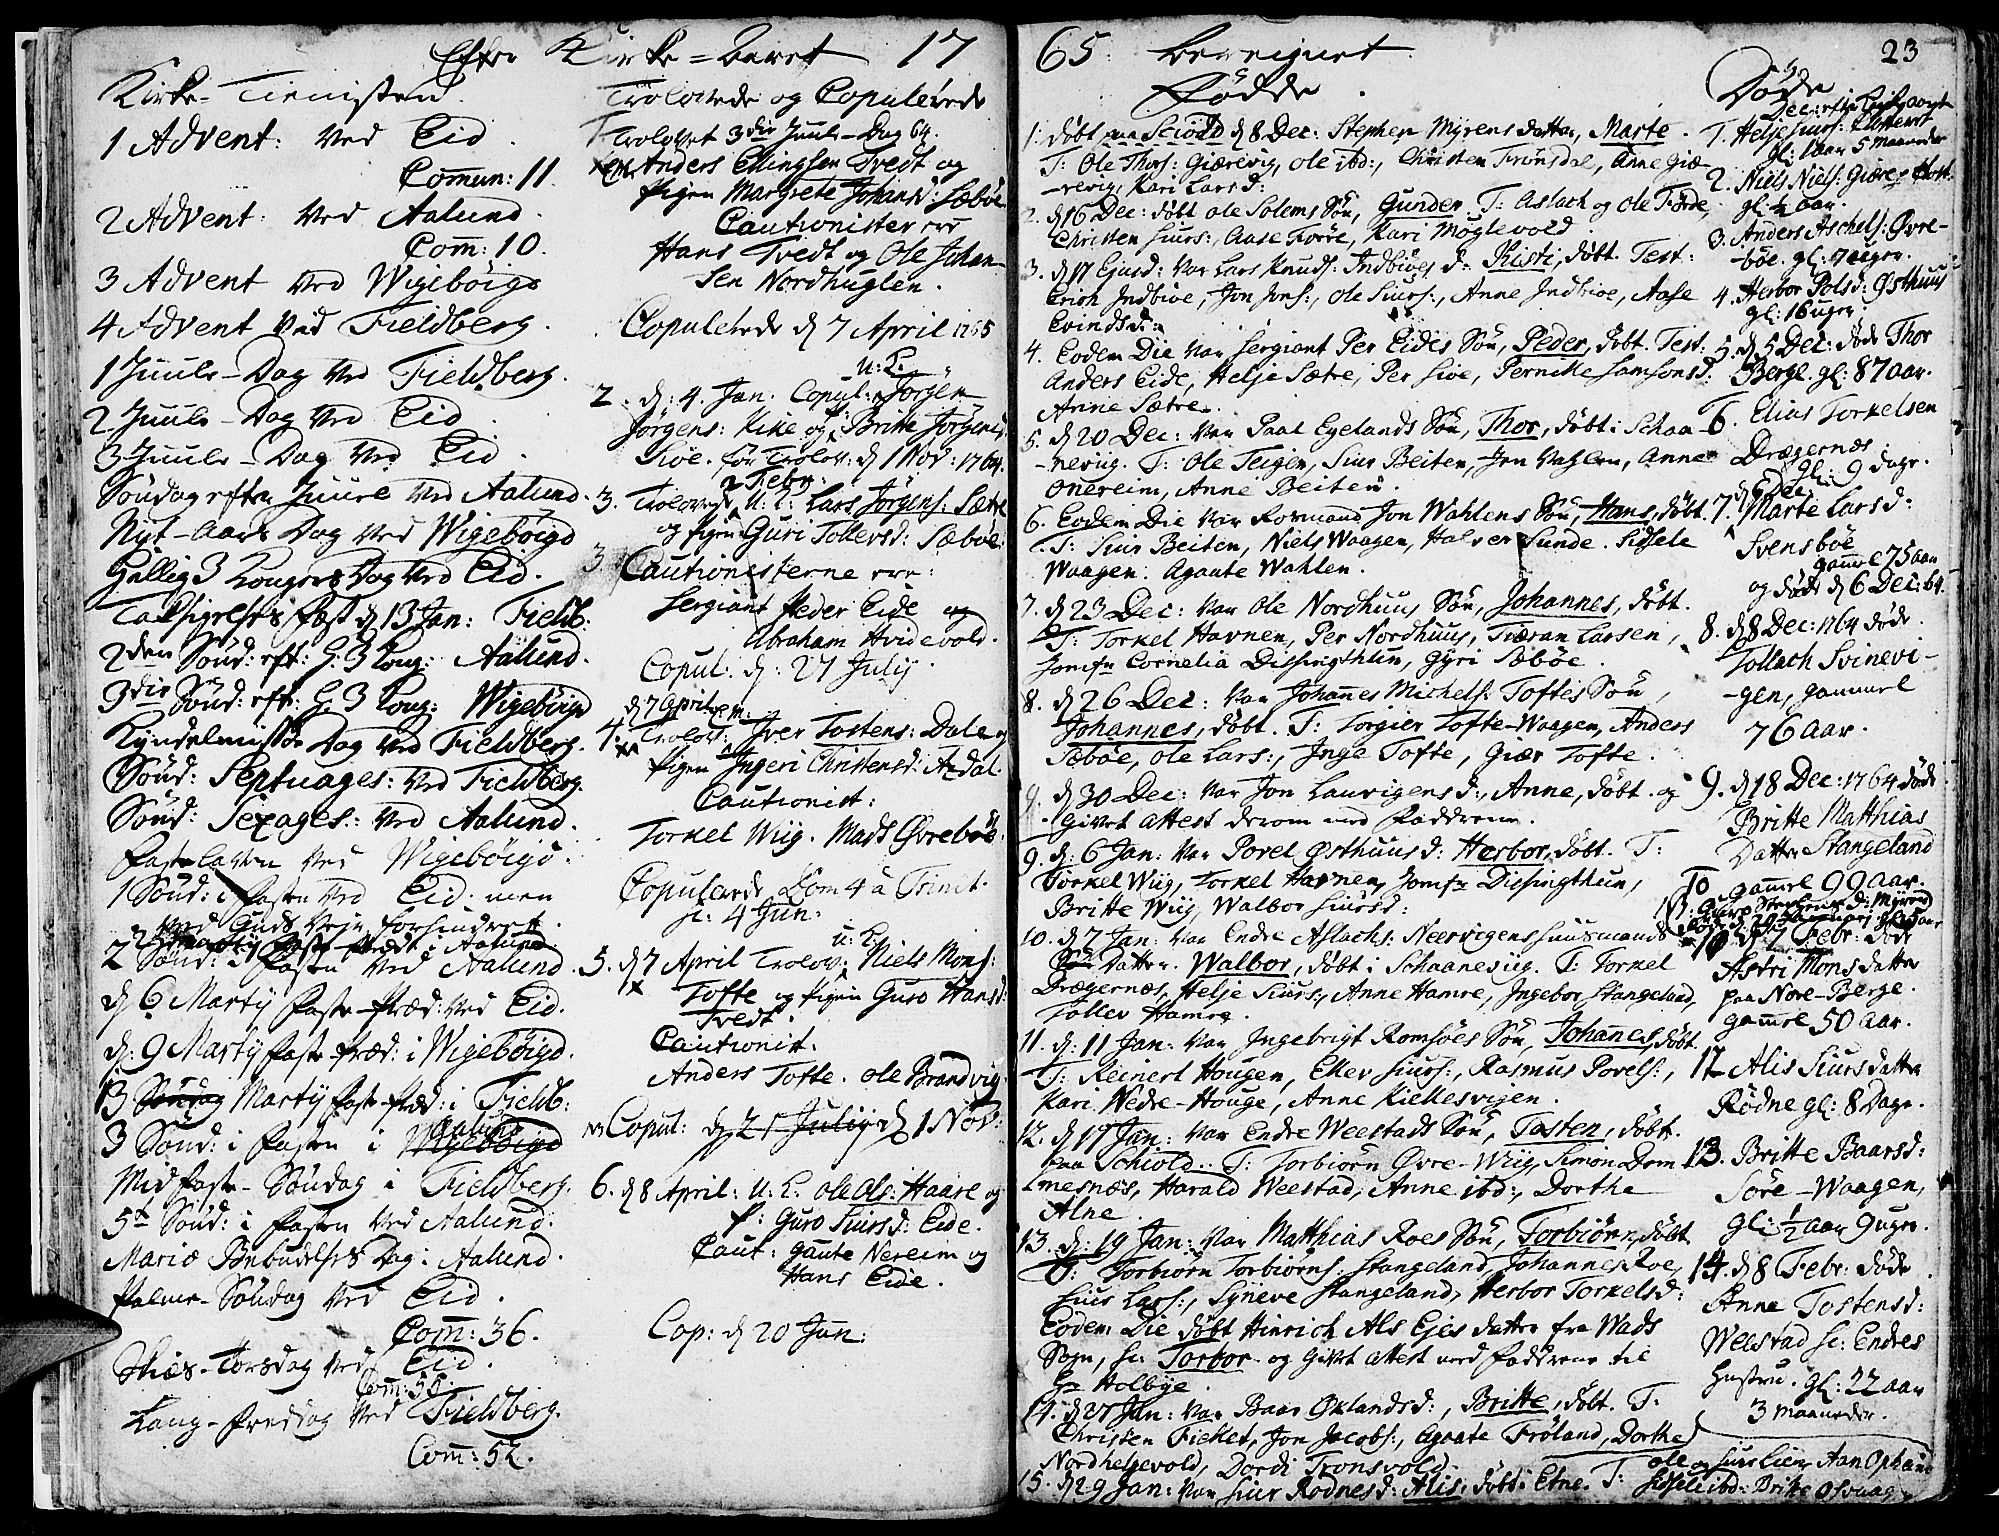 Efter Kirke=Aaret 17
Kirke-Tienisten
1 Advent: ved Eid
Comun: 11.
2 Advent: ved Aalund.
Com: 10.
3 Advent ved Wigebøigd
4 Advent ved Fieldberg.
1 Juule-Dag ved Fieldberg.
2 Juule-Dag ved Eid.
3 Juule-Dag ved Eid.
Søndag efter Juule ved Aalund.
Nyt-Aars Dag ved Wigebøigd
Hellig 3 Kongers Dag ved Eid.
Taksigelses fæst d 13 Jan: Fieldb:
2den Sønd: eft: H. 3 Kong: Aalund.
3die Sønd: eft: H. 3 Kong: Wigebøigd
Kyndelmisse Dag ved Fieldberg.
Sønd: Septuages: ved Fieldberg.
Sønd: Sexages: ved Aalund.
Fastelaven ved Wigebøigd.
1 Sønd: i fasten ved Eid. men
ved Guds Vejr forhindret.
2 Sønd: i fasten ved Aalund.
d 6 Martij faste-præd: ved Eid.
d: 9 Martij faste præd: i Wigebøigd.
13 Søndag Martij faste-præd: i Fieldb:
Aalund
3 Sønd: i fasten i Wigebøigd
Midfaste-Søndag i Fieldberg.
5te Sønd: i fasten ved Aalund.
Mariæ Bebudelses Dag i Aalund.
Palme-Søndag ved Eid.
Com: 36.
Skiær-Torsdag ved Eid.
Com: 55.
Lang-fredag ved Fieldberg.
Com: 52.
Trolovede og Copulerede
Trolovet 3die Juule-Dag 64.
Em: Anders Ellingsen Tvedt og
Pigen Margrete Johansd: Sæbøe
Cautionister ere
Hans Tvedt og Ole Johan-
sen Nordhuglen.
Copulerede d 7 April 1765
u: K.
2. d: 4. Jan. Copul: Jørgen
Jørgens: Kike og P: Britte Jørgensd
Tiøe. før Trolov: d 1 Nov: 1764.
2 Febr:
3. Trolovet u: K: Lars Jørgens: Sætre
og Pigen Guri Tollevsd: Sæbøe.
Cautionisterne ere:
Sergiant Peder Eide og
Abraham Hvidevold.
Copul. d: 27 Julij.
d 7 April
4. Trolov: Em: Iver Tostens: Dale og
Pigen Ingeri Christensd: Axdal.
Cautionist:
Torkel Wiig. Mads Øvrebøe.
Copulerede Dom 4 à Trinit.
sc: 4 Jun:
u: K
5. d 7 April Trolov: Niels Mons:
Tofte og Pigen Guro Hansd:
Tvedt.
Cautionist:
Anders Tofte. Ole Brandvig.
Copul: d 21 Julij d 1 Nov:
6. d 8 April: u: K. Ole Ols: Haare og
P: Guro Siursd: Eide.
Caut: Gaute Nereim og
Hans Eide.
Cop: d 20 Jun:
65. beregnet 23
Fødde
1. døbt paa Sciold d 8 Dec: Stephen Myrens datter, Marte.
T: Ole Thors: Giærevig, ole ibd:, Christen Frønsdal, Anne Giæ-
revig, Kari Larsd:
2. d 16 Dec: døbt ole Solems Søn, Gunder. T: Aslach og Ole Førde,
Christen Siurs:, Aase Førre, Kari Møglevold.
3. d 17 Ejusd: var Lars Knuds: Indbioes d: Kisti, døbt. Test:
Erich Indbioe, Jon Jons:, Ole Siurs:, Anne Indbioe, Aase
Evindsd:
4. Eodem Die var Sergiant Per Eides Søn, Peder, døbt. Test:
Anders Eide, Helje Sætre, Per Sioe, Pernike Samsonsd:
Anne Sætre.
5. d 20 Dec: var Paal Egelands Søn, Thor, døbt i Schaa-
neviig. T: Ole Teigen, Siur Beiten, Jon Vahlen, Anne
Onereim, Anne Beiten.
6. Eodem Die var Rormand Jon Wahlens Søn, Hans, døbt.
T: Siur Beiten, Niels Waagen, Halver Sunde. Sidsele
Waagen. Agaate Wahlen.
7. d 23 Dec: var Ole Nordhuus Søn, Johannes, døbt.
T: Torkel Havnen, Per Nordhuus, Tiæran Larsen,
Jomfr Cornelia Dissingthun, Gyri Sæbøe.
8. d 26 Dec: var Johannes Michels: Toftes Søn,
Johannes, døbt. T: Torgier Tofte-Waagen, Anders
Sæbøe, Ole Lars:, Inge Tofte, Giær Tofte.
9. d 30 Dec: var Jon Laurigens d:, Anne, døbt. og
Givet attest derom med Fadderne.
9. d: 6 Jan: var Povel Østhuus d: Herbor, døbt. T:
Torkel Wiig, Torkel Havnen, Jomfr Dissingthun,
Britte Wiig, Walbor Siursd:
10. d 7 Jan: var Endre Aslachs: Neervigens huusmands
Søn Datter. Walbor, døbt i Schaaneviig. T: Torkel
Drægernæs, Helje Siurs:, Anne Hamre, Ingebor Stangeland,
Tollev Hamre.
11. d: 11 Jan: var Ingebrigt Romsøes Søn, Johannes, døbt
T: Reinert Hougen, Elkev Siurs:, Rasmus Povels:,
Kari Nedre-Houge, Anne Kiellesvigen.
12. d 17 Jan: var Endre Weestads Søn, Tosten, døbt.
paa Schiold. T: Torbiørn Øvre-Wiig, Simon Dom-
mesnæs, Harald Weestad, Anne ibd:, Dorthe
Alne.
13. d: 19 Jan: var Matthias Roes Søn, Torbiørn, døbt.
T: Torbiørn Torbiørns: Stangeland, Johannes Roe,
Siur Lars:, Syneve Stangeland, Herbor Torkelsd:
Eodem Die døbt Hinrich Als Ejes datter fra Wads
Sogn, sc: Torbor og Givet attest med Fadderne til
Hr Holbye.
14. d 27 Jan: var Baar Øklandsd:, Britte, døbt. T:
Christen Fickel, Jon Jacobs:, Agaate Frøland, Dorthe
Nordhelgevold, Dordi Tronsvold.
15. d 29 Jan: var Siur Rødnes d: Alis, døbt i Etne. T: ole og Siur Lien, Aan Ophaug
Sidsele ibd: Britte Osvaag.
Døde
1. Helje Siurs:
gl: 1 aar 5 maaneder
2. Niels Niels: Giære-
gl: ½ aar.
3. Anders Aschels: Øvre-
bøe. gl: 7 uger.
4. Herbor Polsd: Østhuus
gl: 16 uger.
5. d 5 Dec: døde Thor
Berge gl: 87 aar.
6. Elias Torkelsen
Drægernæs
gl: 9 dage.
d 6 Dec:
7. Marte Larsd:
Svensbøe
gamel 75 aar
og døde d 6 Dec: 64.
8. d 8 Dec: 1764 døde
Tollach Svinevi-
gen, gammel
76 aar.
9. d 18 Dec: 1764 døde
Britte Matthias
Datter Stangeland
gamel 99 aar.
10. d 7 Febr: døde
Astri Mons datter
paa Nore-Berge.
gamel 50 aar.
12 Alis Siurs datter
Rødne gl: 8 Dage.
13. Britte Baarsd:
Søre-Waagen,
gl: ½ aar 9 uger.
14. d 8 Febr. døde
Anne Tostensd:
Weestad sc: Endres
Hustru. gl: 22 aar
3 maaneder.